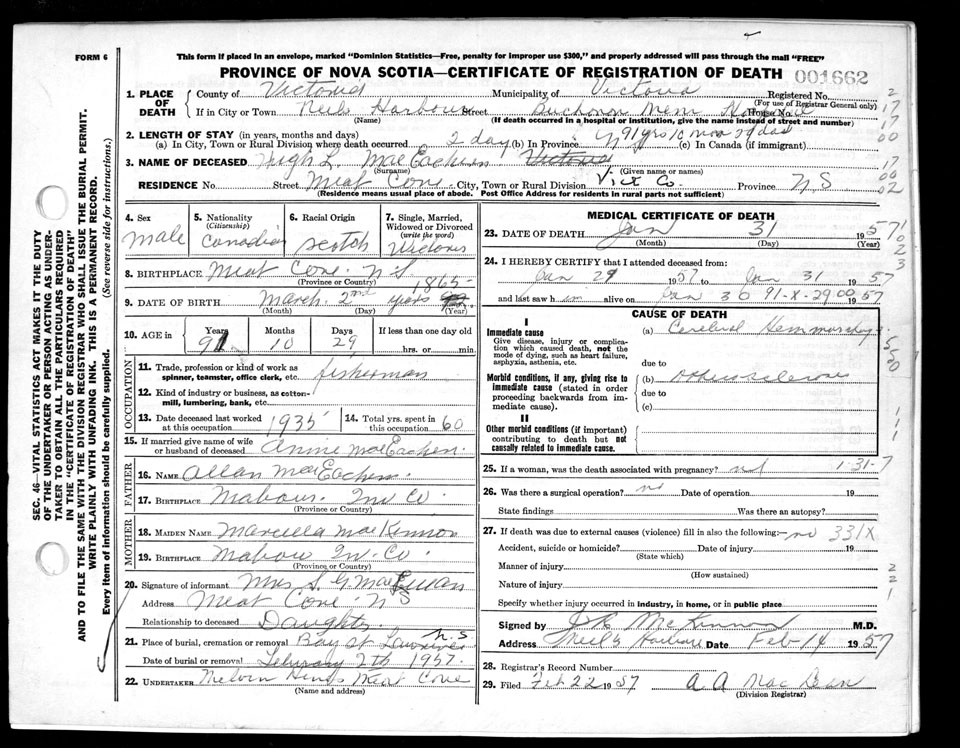 FORM 6
This form if placed in an envelope, marked "Dominion Statistics—Free, penalty for improper use $300," and properly addressed will pass through the mail "FREE"
PROVINCE OF NOVA SCOTIA—CERTIFICATE OF REGISTRATION OF DEATH 001662
SEC. 46—VITAL STATISTICS ACT MAKES IT THE DUTY
OF THE UNDERTAKER OR PERSON ACTING AS UNDER-
TAKER TO OBTAIN ALL THE PARTICULARS REQUIRED
IN THE "CERTIFICATE OF REGISTRATION OF DEATH"
AND TO FILE THE SAME WITH THE DIVISION REGISTRAR WHO SHALL ISSUE THE BURIAL PERMIT.
WRITE PLAINLY WITH UNFADING INK. THIS IS A PERMANENT RECORD.
Every item of information should be carefully supplied. (See reverse side for instructions.)
1. PLACE OF DEATH
County of Victoria Municipality of Victoria Registered No.
(For use of Registrar General only)
If in City or Town Neils Harbour Street Buchanan Mem House No.
(Name) (If death occurred in a hospital or institution, give the name instead of street and number)
2. LENGTH OF STAY (in years, months and days)
(a) In City, Town or Rural Division where death occurred 2 day (b) In Province 91 yrs 10 mon 29 das (c) In Canada (if immigrant)
3. NAME OF DECEASED Hugh L. MacEachern Victoria
(Surname) (Given name or names)
RESIDENCE No. Street Meat Cove City, Town or Rural Division Vict Co. Province N S
(Residence means usual place of abode. Post Office Address for residents in rural parts not sufficient)
4. Sex male
5. Nationality (Citizenship) Canadian
6. Racial Origin Scotch
7. Single, Married, Widowed or Divorced (write the word)
8. BIRTHPLACE Meat Cove N S
(Province or Country)
9. DATE OF BIRTH March 2nd 1865
(Month) (Day) (Year)
10. AGE in Years 91 Months 10 Days 29 If less than one day old hrs. or min.
OCCUPATION
11. Trade, profession or kind of work as spinner, teamster, office clerk, etc. fisherman
12. Kind of industry or business, as cotton-mill, lumbering, bank, etc.
13. Date deceased last worked at this occupation 1935
14. Total yrs. spent in 60
15. If married give name of wife or husband of deceased Annie MacEachen
FATHER
16. NAME Allan MacEachen
17. BIRTHPLACE Mabou. Inv Co
(Province or Country)
MOTHER
18. MAIDEN NAME Marcella MacKennon
19. BIRTHPLACE Mabou Inv. Co.
(Province or Country)
20. Signature of informant Mrs S. G. MacLellan
Address Meat Cove N S
Relationship to deceased Daughter
21. Place of burial, cremation or removal Bay St Lawrence N.S.
Date of burial or removal February 2th 1957
22. UNDERTAKER Melvin Hines Meat Cove
(Name and address)
MEDICAL CERTIFICATE OF DEATH
23. DATE OF DEATH Jan 31 1957
(Month) (Day) (Year)
24. I HEREBY CERTIFY that I attended deceased from:
Jan 29 1957 to Jan 31 1957
and last saw him alive on Jan 30 91-X-29 00 1957
CAUSE OF DEATH
I
Immediate cause
Give disease, injury or complication which caused death, not the mode of dying, such as heart failure, asphyxia, asthenia, etc.
(a) Cerebral Hemmorrhage
due to
Morbid conditions, if any, giving rise to immediate cause (stated in order proceeding backwards from immediate cause).
(b)
due to
(c)
II
Other morbid conditions (if important) contributing to death but not causally related to immediate cause.
25. If a woman, was the death associated with pregnancy? 1-31-7
26. Was there a surgical operation? no Date of operation 19
State findings Was there an autopsy?
27. If death was due to external causes (violence) fill in also the following:— no 331X
Accident, suicide or homicide? Date of injury 19
(State which)
Manner of injury
(How sustained)
Nature of injury
Specify whether injury occurred in industry, in home, or in public place
Signed by McKinnon M.D.
Address Neils Harbour Date Feb 14 1957
28. Registrar's Record Number
29. Filed Feb 22 1957 A A MacLean
(Division Registrar)